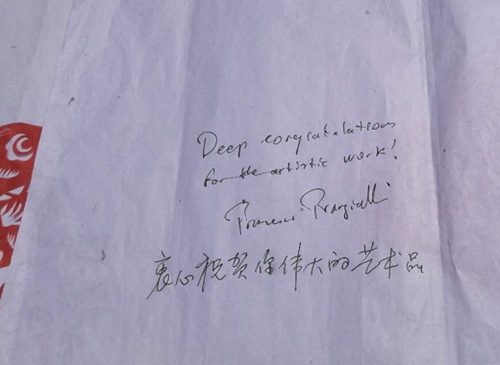 Deep congratulations
for the artistic work!
Francesco Frangialli
衷心祝贺你伟大的艺术品